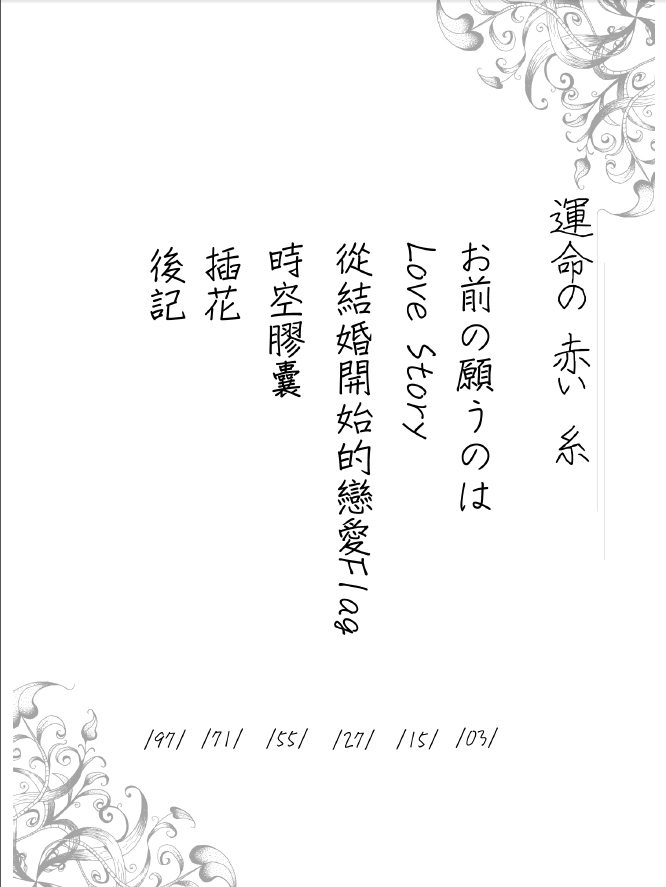 運命の 赤い 糸
お前の願うのは
Love Story
從結婚開始的戀愛Flag
時空膠囊
插花
後記
/03/
/15/
/27/
/55/
/71/
/97/